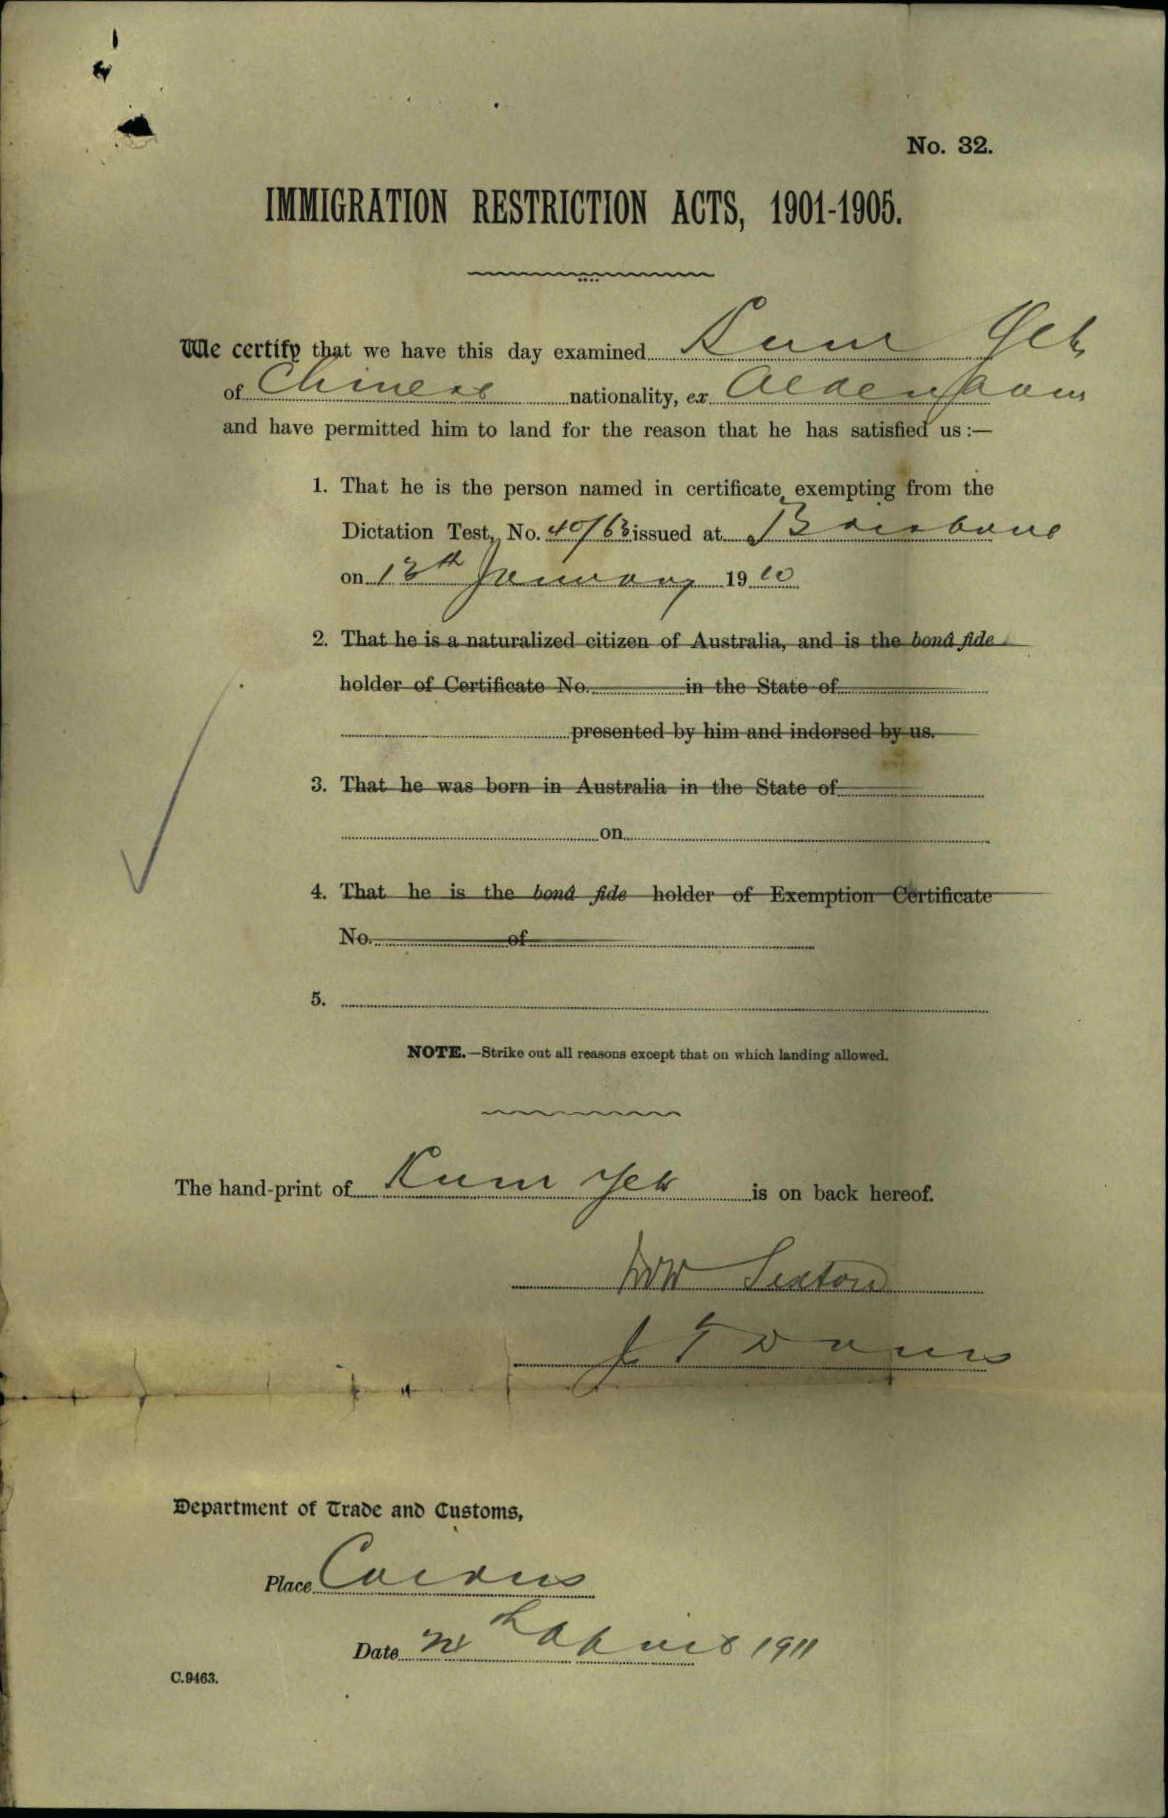 No. 32.
IMMIGRATION RESTRICTION ACTS, 1901-1905.
We certify that we have this day examined Kum Yek
of Chinese nationality, ex Aldenham
and have permitted him to land for the reason that he has satisfied us:—
1. That he is the person named in certificate exempting from the
Dictation Test, No. 40/63 issued at Brisbane
on 13th January 1910
2. That he is a naturalized citizen of Australia, and is the bonâ fide
holder of Certificate No. in the State of
presented by him and indorsed by us.
3. That he was born in Australia in the State of
on
4. That he is the bonâ fide holder of Exemption Certificate
No. of
5.
NOTE.—Strike out all reasons except that on which landing allowed.
The hand-print of Kum Yek is on back hereof.
Sexton
J T
Department of Trade and Customs,
Place Cairns
Date April 1911
C.9463.